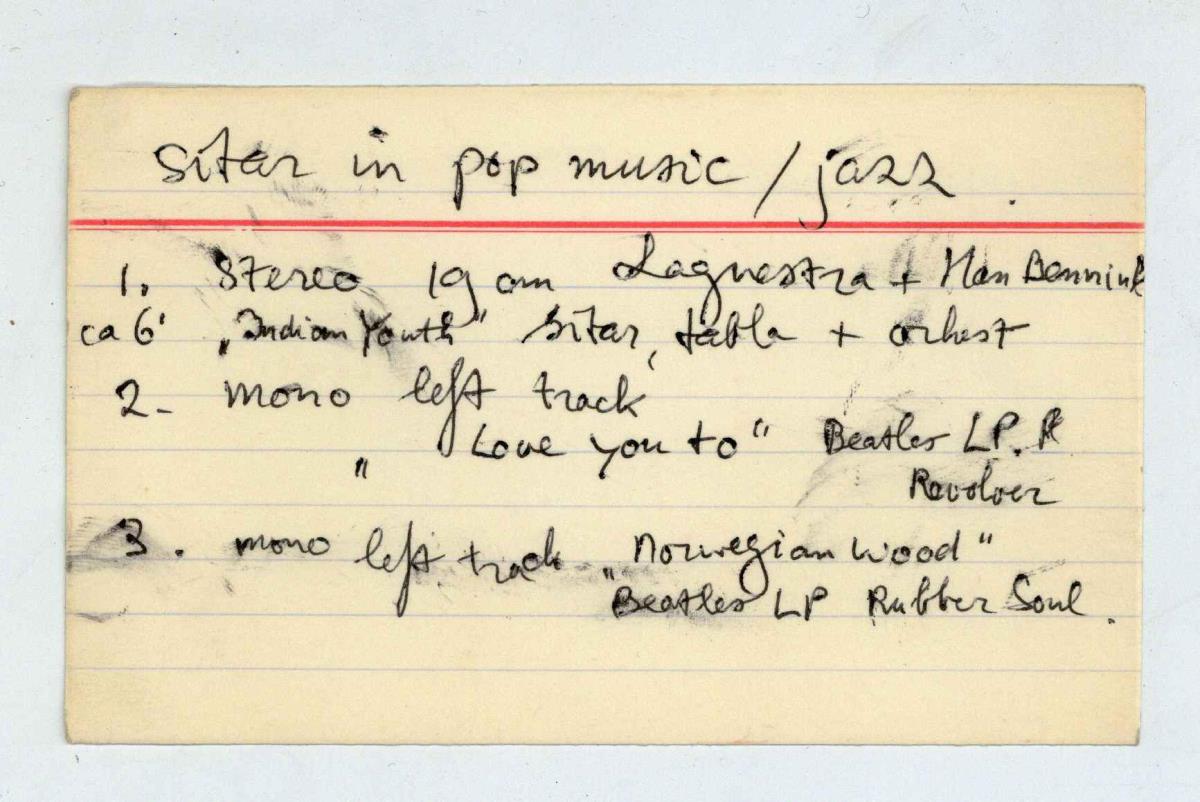 Sitar in pop music / jazz.
1. Stereo 19 cm Lagnestra + Han Bennink
ca 6' „Indian Youth" Sitar, tabla + orkest
2- mono left track
„ Love you to" Beatles LP. R
Revolver
3. mono left track „Norwegian Wood"
Beatles LP Rubber Soul.